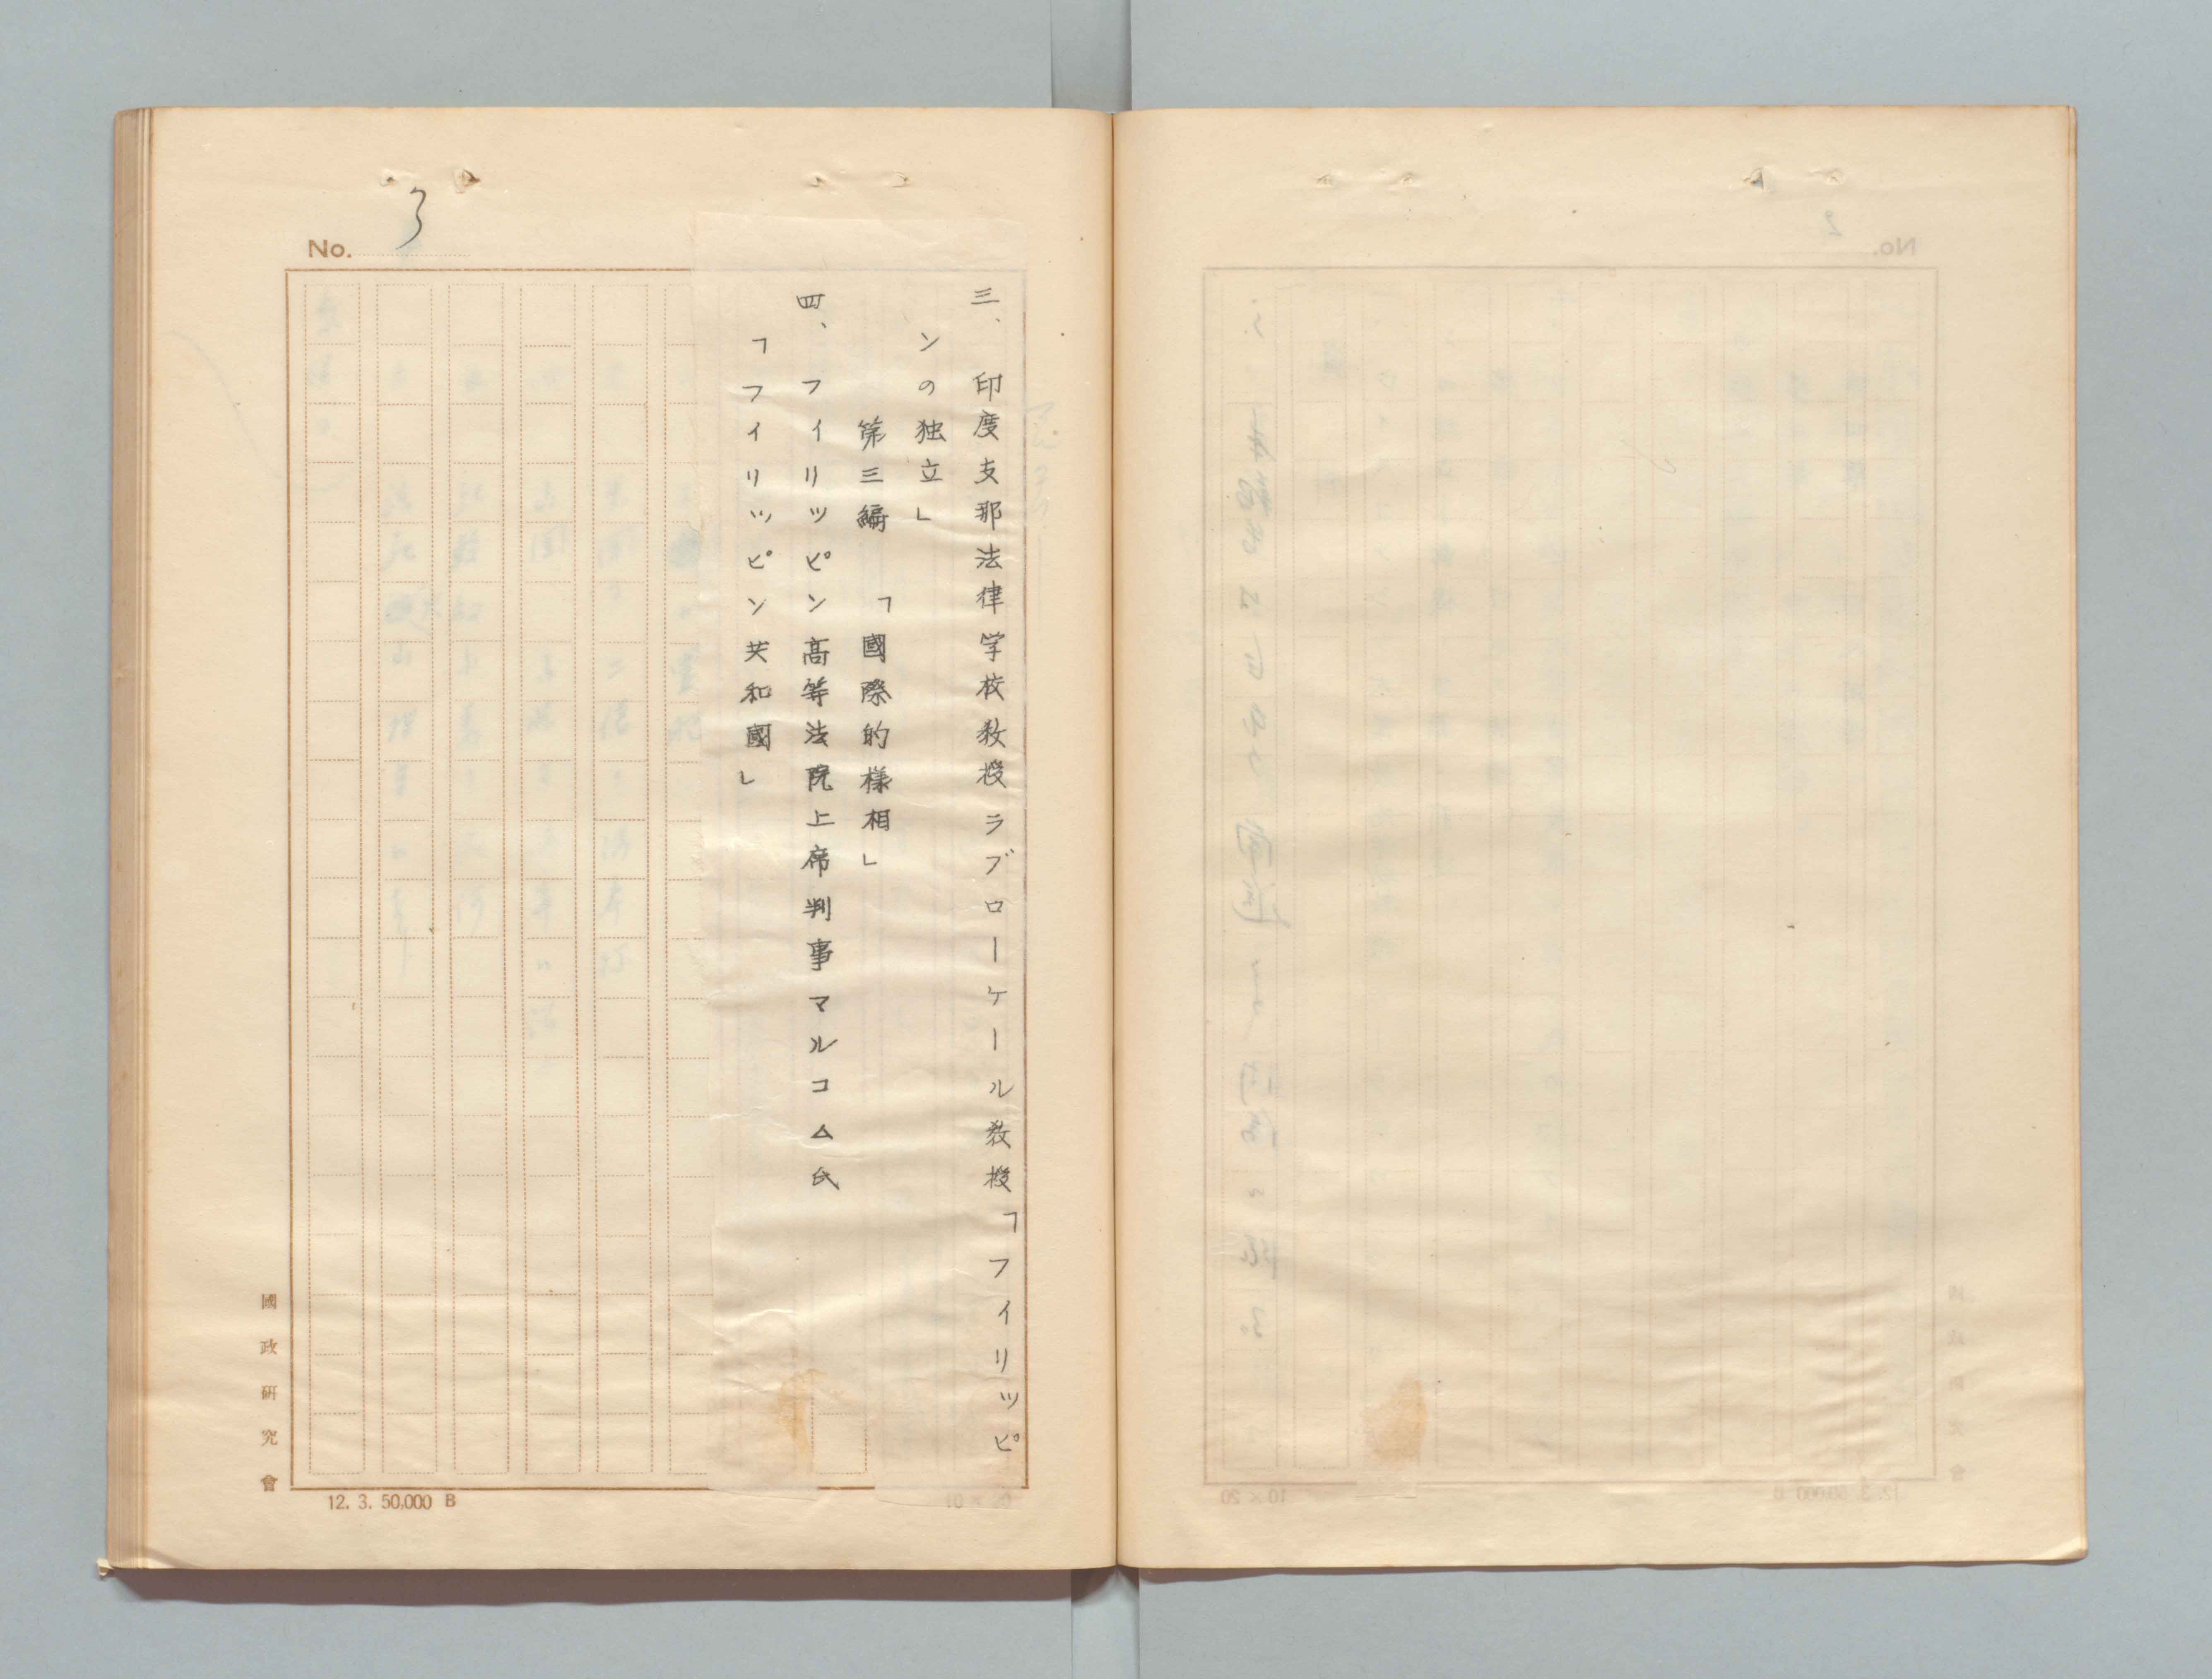 No. 3
三、印度支那法律学校教授ラブローケール教授「フイリツピ
ンの独立」
第三編　「國際的様相」
四、フイリツピン高等法院上席判事マルコム氏
「フイリツピン共和國」
國政研究會
12. 3. 50,000 B